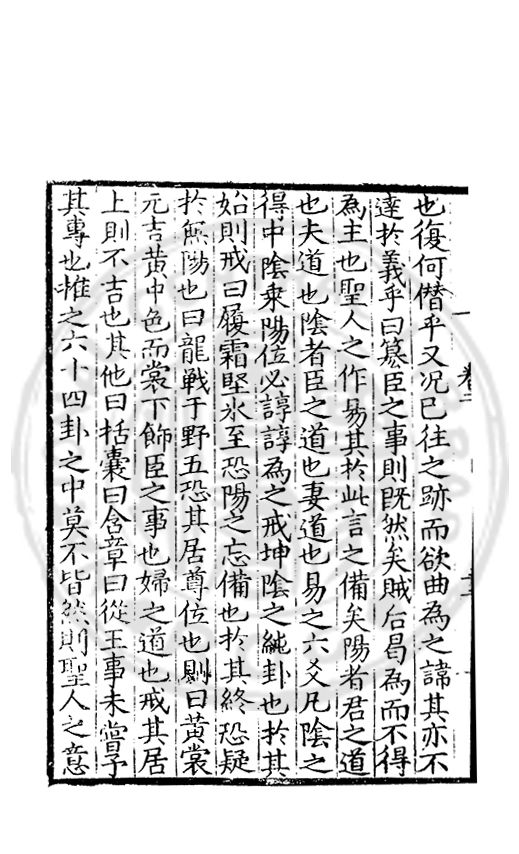 也復何僭乎又况已往之跡而欲曲為之諱其亦不
達於義乎曰簒臣之事則既然矣賊后曷為而不得
為主也聖人之作易其於此言之備矣陽者君之道
也夫道也陰者臣之道也妻道也易之六爻凡陰之
得中陰乗陽位必諄諄為之戒坤陰之純卦也於其
始則戒曰履霜堅氷至恐陽之忘備也於其終恐疑
於無陽也曰龍戰于野五恐其居尊位也則曰黃裳
元吉黃中色而裳下飾臣之事也婦之道也戒其居
上則不吉也其他曰括囊曰含章曰從王事未嘗予
其專也推之六十四卦之中莫不皆然則聖人之意